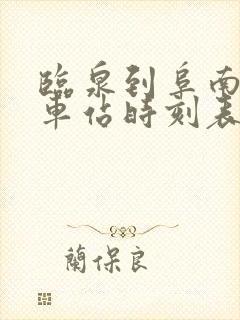 臨泉到阜南
車佔時刻表
蘭保良